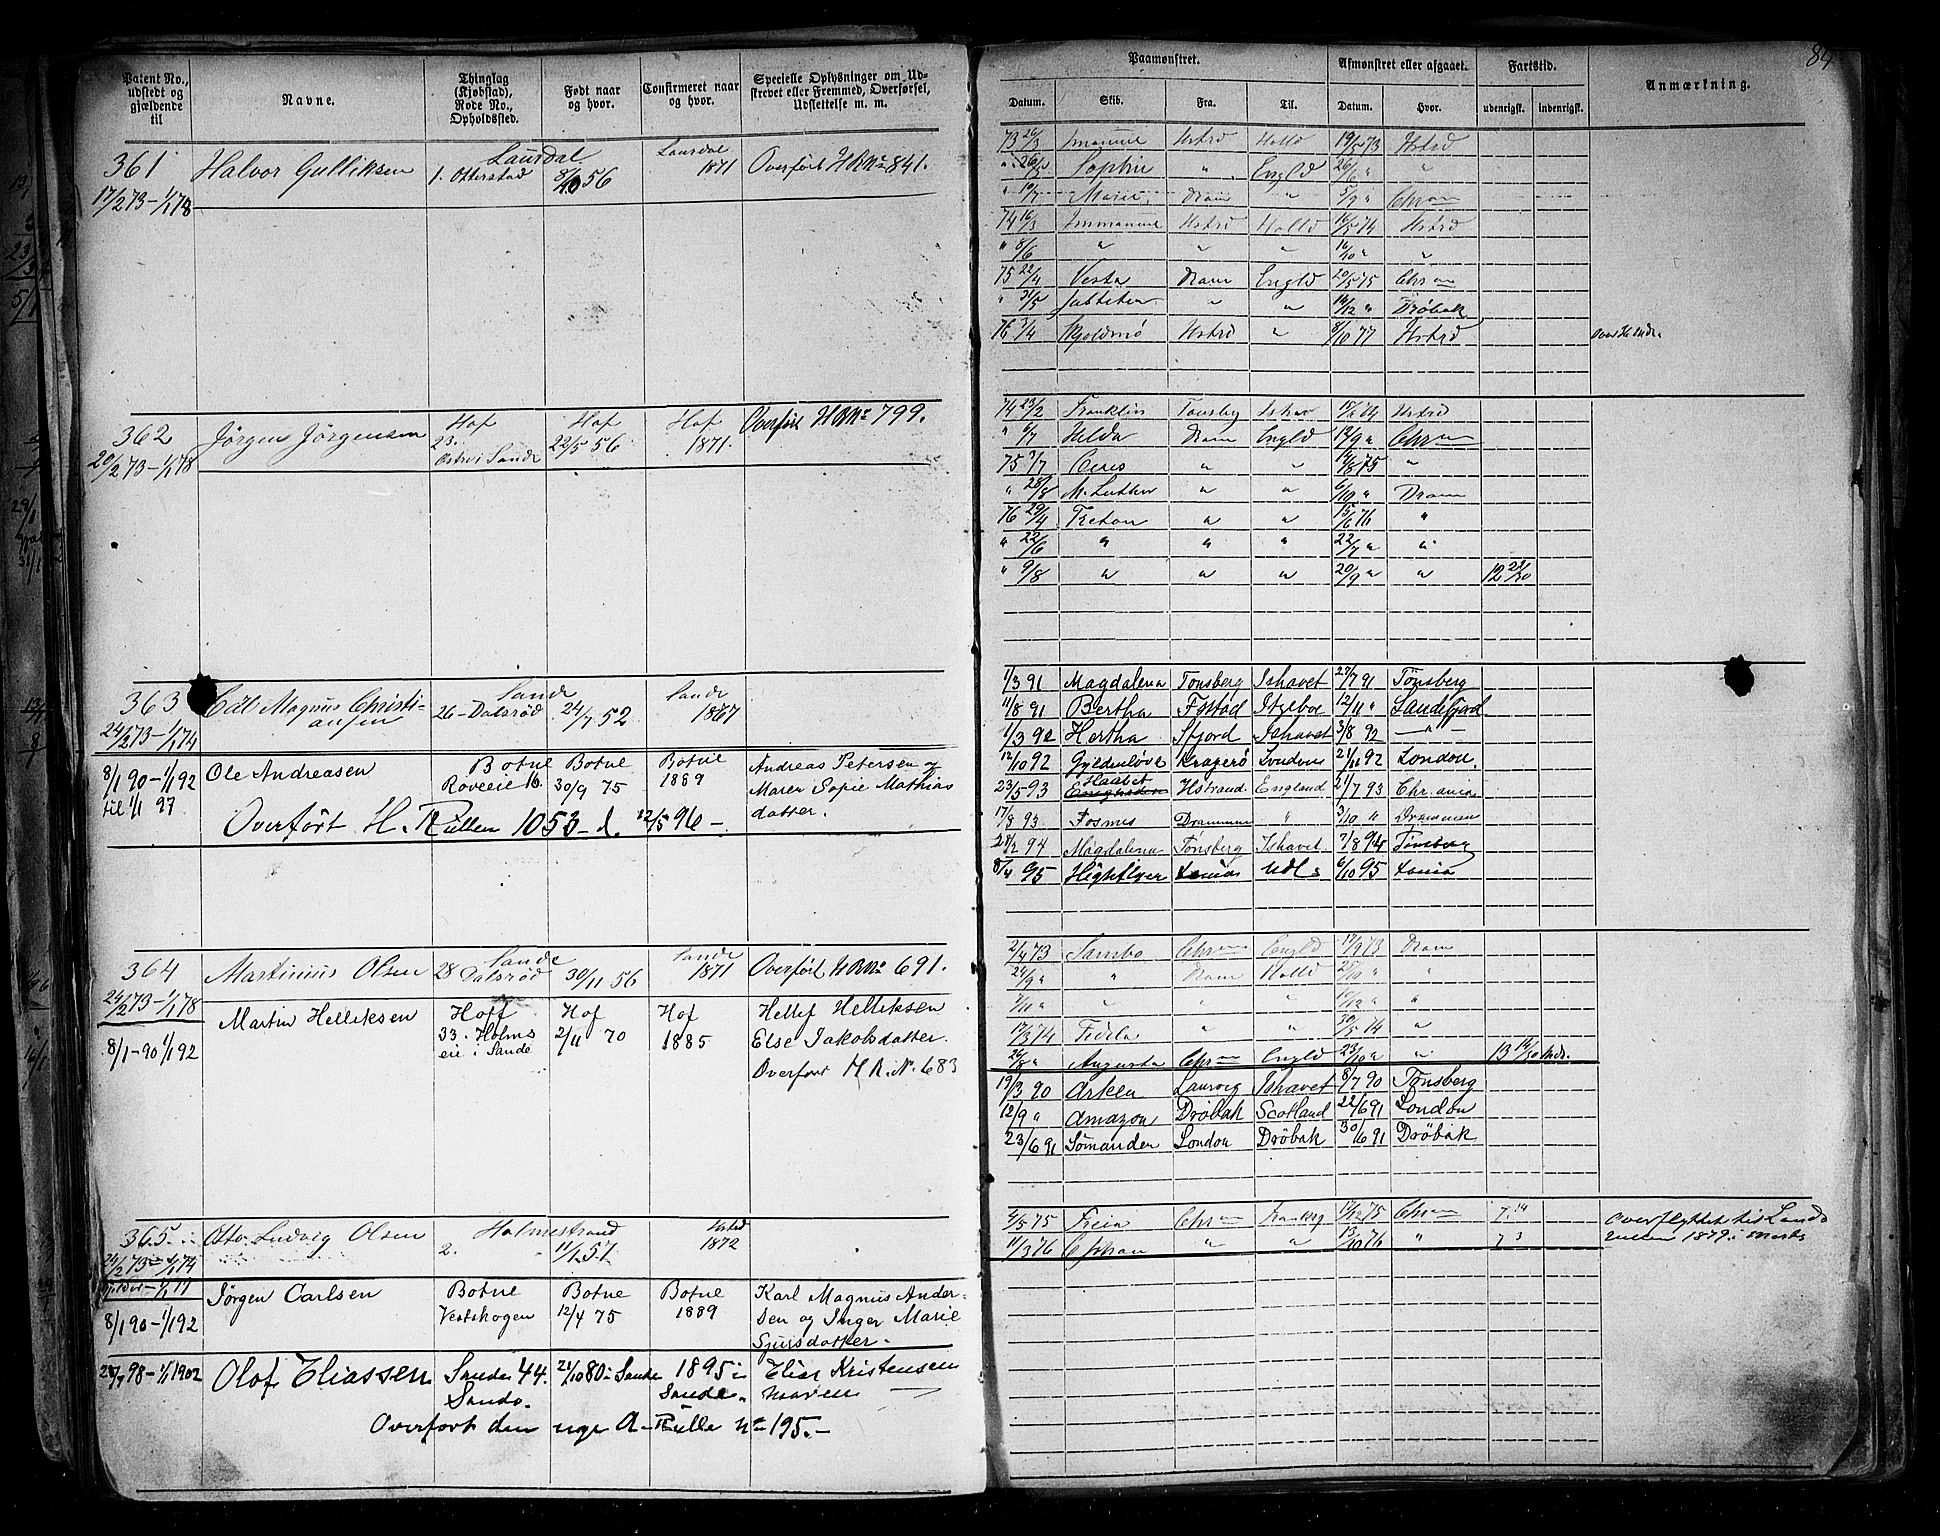 84
Patent No., udstedt og gjældende til
Navne.
Thinglag (Kjøbstad), Rode No., Opholdssted.
Født naar og hvor.
Confirmeret naar og hvor.
Specielle Oplysninger om Udskrevet eller Fremmed, Overførsel, Udslettelse m. m.
Paamønstret.
Afmønstret eller afgaaet.
Fartstid.
Anmærkning.
Datum. Skib. Fra. Til. Datum. Hvor. udenrigsk. indenrigsk.
361 Halvor Gulliksen Laurdal Laurdal
1. Otterstad 8/10 56 1871 Overført H R No 841.
17/2 73 – 1/1 78
362 Jørgen Jørgensen Hof Hof Hof Overført H R No 799.
23. 22/5 56 1871.
20/2 73 – 1/1 78 i Sande
363 Magnus Christi- Sande Sande
ansen 26 – Dalsrød 24/7 52 1867
24/2 73 – 1/1 74
8/1 90 – 1/1 92 Ole Andreasen Botne Botne Botne Andreas Petersen og
til 1/1 97 Roveeie 16. 30/9 75 1889 Maren Sofie Mathias
datter.
Overført H. Rullen 1053 – d. 12/5 96 –
364 Martinius Olsen Sande Sande
28 Dalsrød 30/11 56 1871 Overført H R No 691.
24/2 73 – 1/1 78
8/1 – 90 1/1 92 Martin Helliksen Hoff Hof Hof Hellef Helliksen
33. Holms 2/11 70 1885 Else Jakobsdatter.
eie i Sande
Overført H. R. N. 683
365 Otto Ludvig Olsen Holmestrand Hstrd
2. 11/1 51 1872
24/2 73 – 1/1 74
8/1 90 – 1/1 92 Jørgen Carlsen Botne Botne Botne Karl Magnus Ander-
Vestskogen 12/4 75 1889 sen og Inger Marie
Sjursdatter.
28/7 98 – 1/1 1902 Olof Eliassen Sande 44. 21/10 80 i Sande 1895 i Elias Kristensen
Sande. Sande.
Overført den nye A – Rulle No 195. –
73 26/3 Imanuel Hstrd Holld 19/5 73 Hstrd
" 26/5 Sophie " Engld 26/6 " "
" 19/7 Marie Dram " 5/9 " Chran
74 16/3 Immanuel Hstrd Holld 16/5 74 Hstrd
" 8/6 " " " 16/10 " "
75 22/4 Vesta Dram Engld 20/5 75 Chran
" 31/5 " " 14/12 " Drøbak
76 3/4 Skjoldmø Hstrd " 8/10 77 Hstrd
74 23/2 Franklin Tønsbg Ishav Hstrd
" 6/7 Helda Dram Engld 14/9 " Chran
75 3/7 Ceres " " 14/8 75 "
" 28/8 M. Luther " " 6/10 " Dram
76 29/4 Treton " " 15/6 76 "
" 22/6 " " " 22/7 " "
" 9/8 " " " 20/9 " " 12 28/30
1/3 91 Magdalena Tønsberg Ishavet 27/7 91 Tønsberg
11/8 91 Bertha 12/11 " Sandefjord
1/3 92 Hertha Sfjord Ishavet 3/8 92 – " –
12/10 92 Gyldenløve Kragerø London 21/11 92 London.
23/5 93 Haabet Hstrand England 21/7 93 Chr.ania
17/8 93 Fosnæs Drammen " 3/10 " Drammen
28/2 94 Magdalena Tønsberg Ishavet 7/8 94 Tønsberg
8/4 95 Highflyer Udl. 6/10 95
2/4 73 Sambo Chran Engld 17/9 73 Dram
24/9 " " Dram Holld 25/10 " "
7/11 " " " " "
17/3 74 Fidela " " 30/5 74 "
26/8 " Augusta Chran Engld 23/10 " " 13 14/30 Mdr.
19/3 90 Arken Laurvig Ishavet 8/7 90 Tønsberg
12/9 " Amazon Drøbak Scotland 22/6 91 London
23/6 91 Sømanden London Drøbak 30/6 91 Drøbak
75 Freia Chran Frankrg 17/12 75 Chran 7 14 Overflyttet til Lands
11/3 76 " " 13/10 76 " 7 3 rullen 1879 i Marts